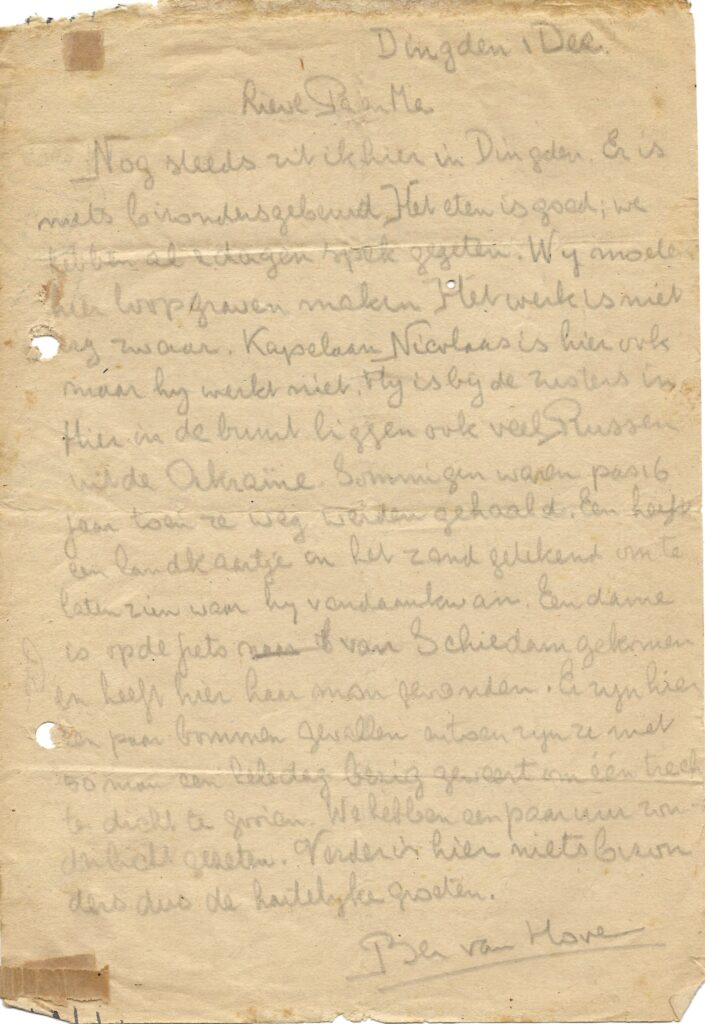 Dingden 1 Dec.
Lieve Pa en Ma
Nog steeds zit ik hier in Dingden. Er is
niets bizonders gebeurd. Het eten is goed; we
hebben al 2 dagen spek gegeten. Wij moeten
hier loopgraven maken. Het werk is niet
erg zwaar. Kapelaan Nicolaas is hier ook
maar hy werkt niet. Hy is by de zusters in
Hier in de buurt liggen ook veel Russen
uit de Okraïne. Sommigen waren pas 16
jaar toen ze weg werden gehaald. Een heeft
een landkaartje in het zand getekend om te
laten zien waar hy vandaan kwam. Een dame
is op de fiets van Schiedam gekomen
en heeft hier haar man gevonden. Er zyn hier
een paar bommen gevallen en toen zyn ze met
50 man een hele dag bezig geweest om één trech
ter dicht te gooien. We hebben een paar uur zon-
der licht gezeten. Verder is hier niets bizon
ders dus de hartelyke groeten.
Ben van Hove